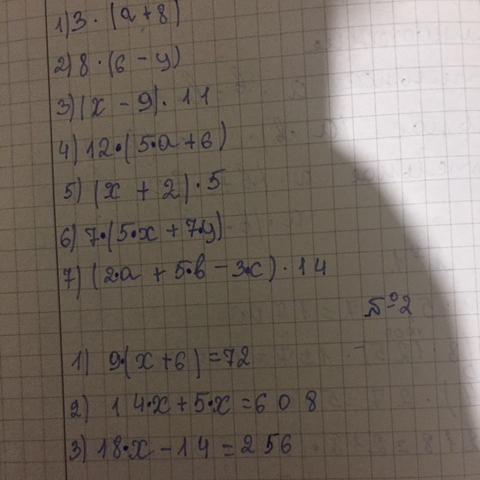 1) 3 · (a + 8)
2) 8 · (6 - y)
3) (x - 9) · 11
4) 12·(5·a + 6)
5) (x + 2) · 5
6) 7·(5·x + 7·y)
7) (2·a + 5·b - 3·c) · 14
№2
1) 9·(x + 6) = 72
2) 14·x + 5·x = 608
3) 18·x - 14 = 256